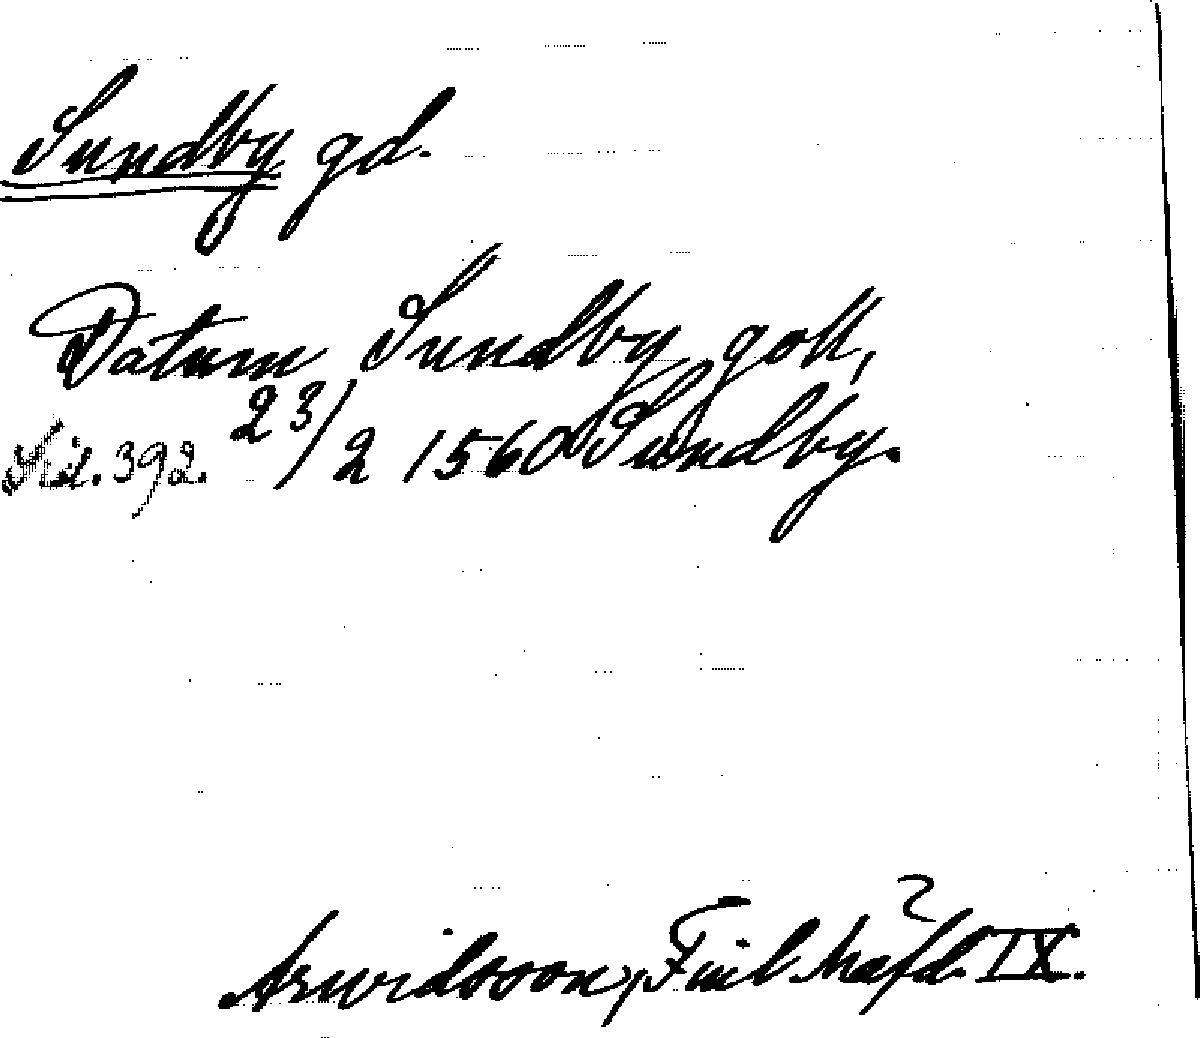 Sundby gd.
Datum Sundby goll,
Sid. 392. 23/2 1560 Sundby.
Arwidsson, Finl Häfd. IX.